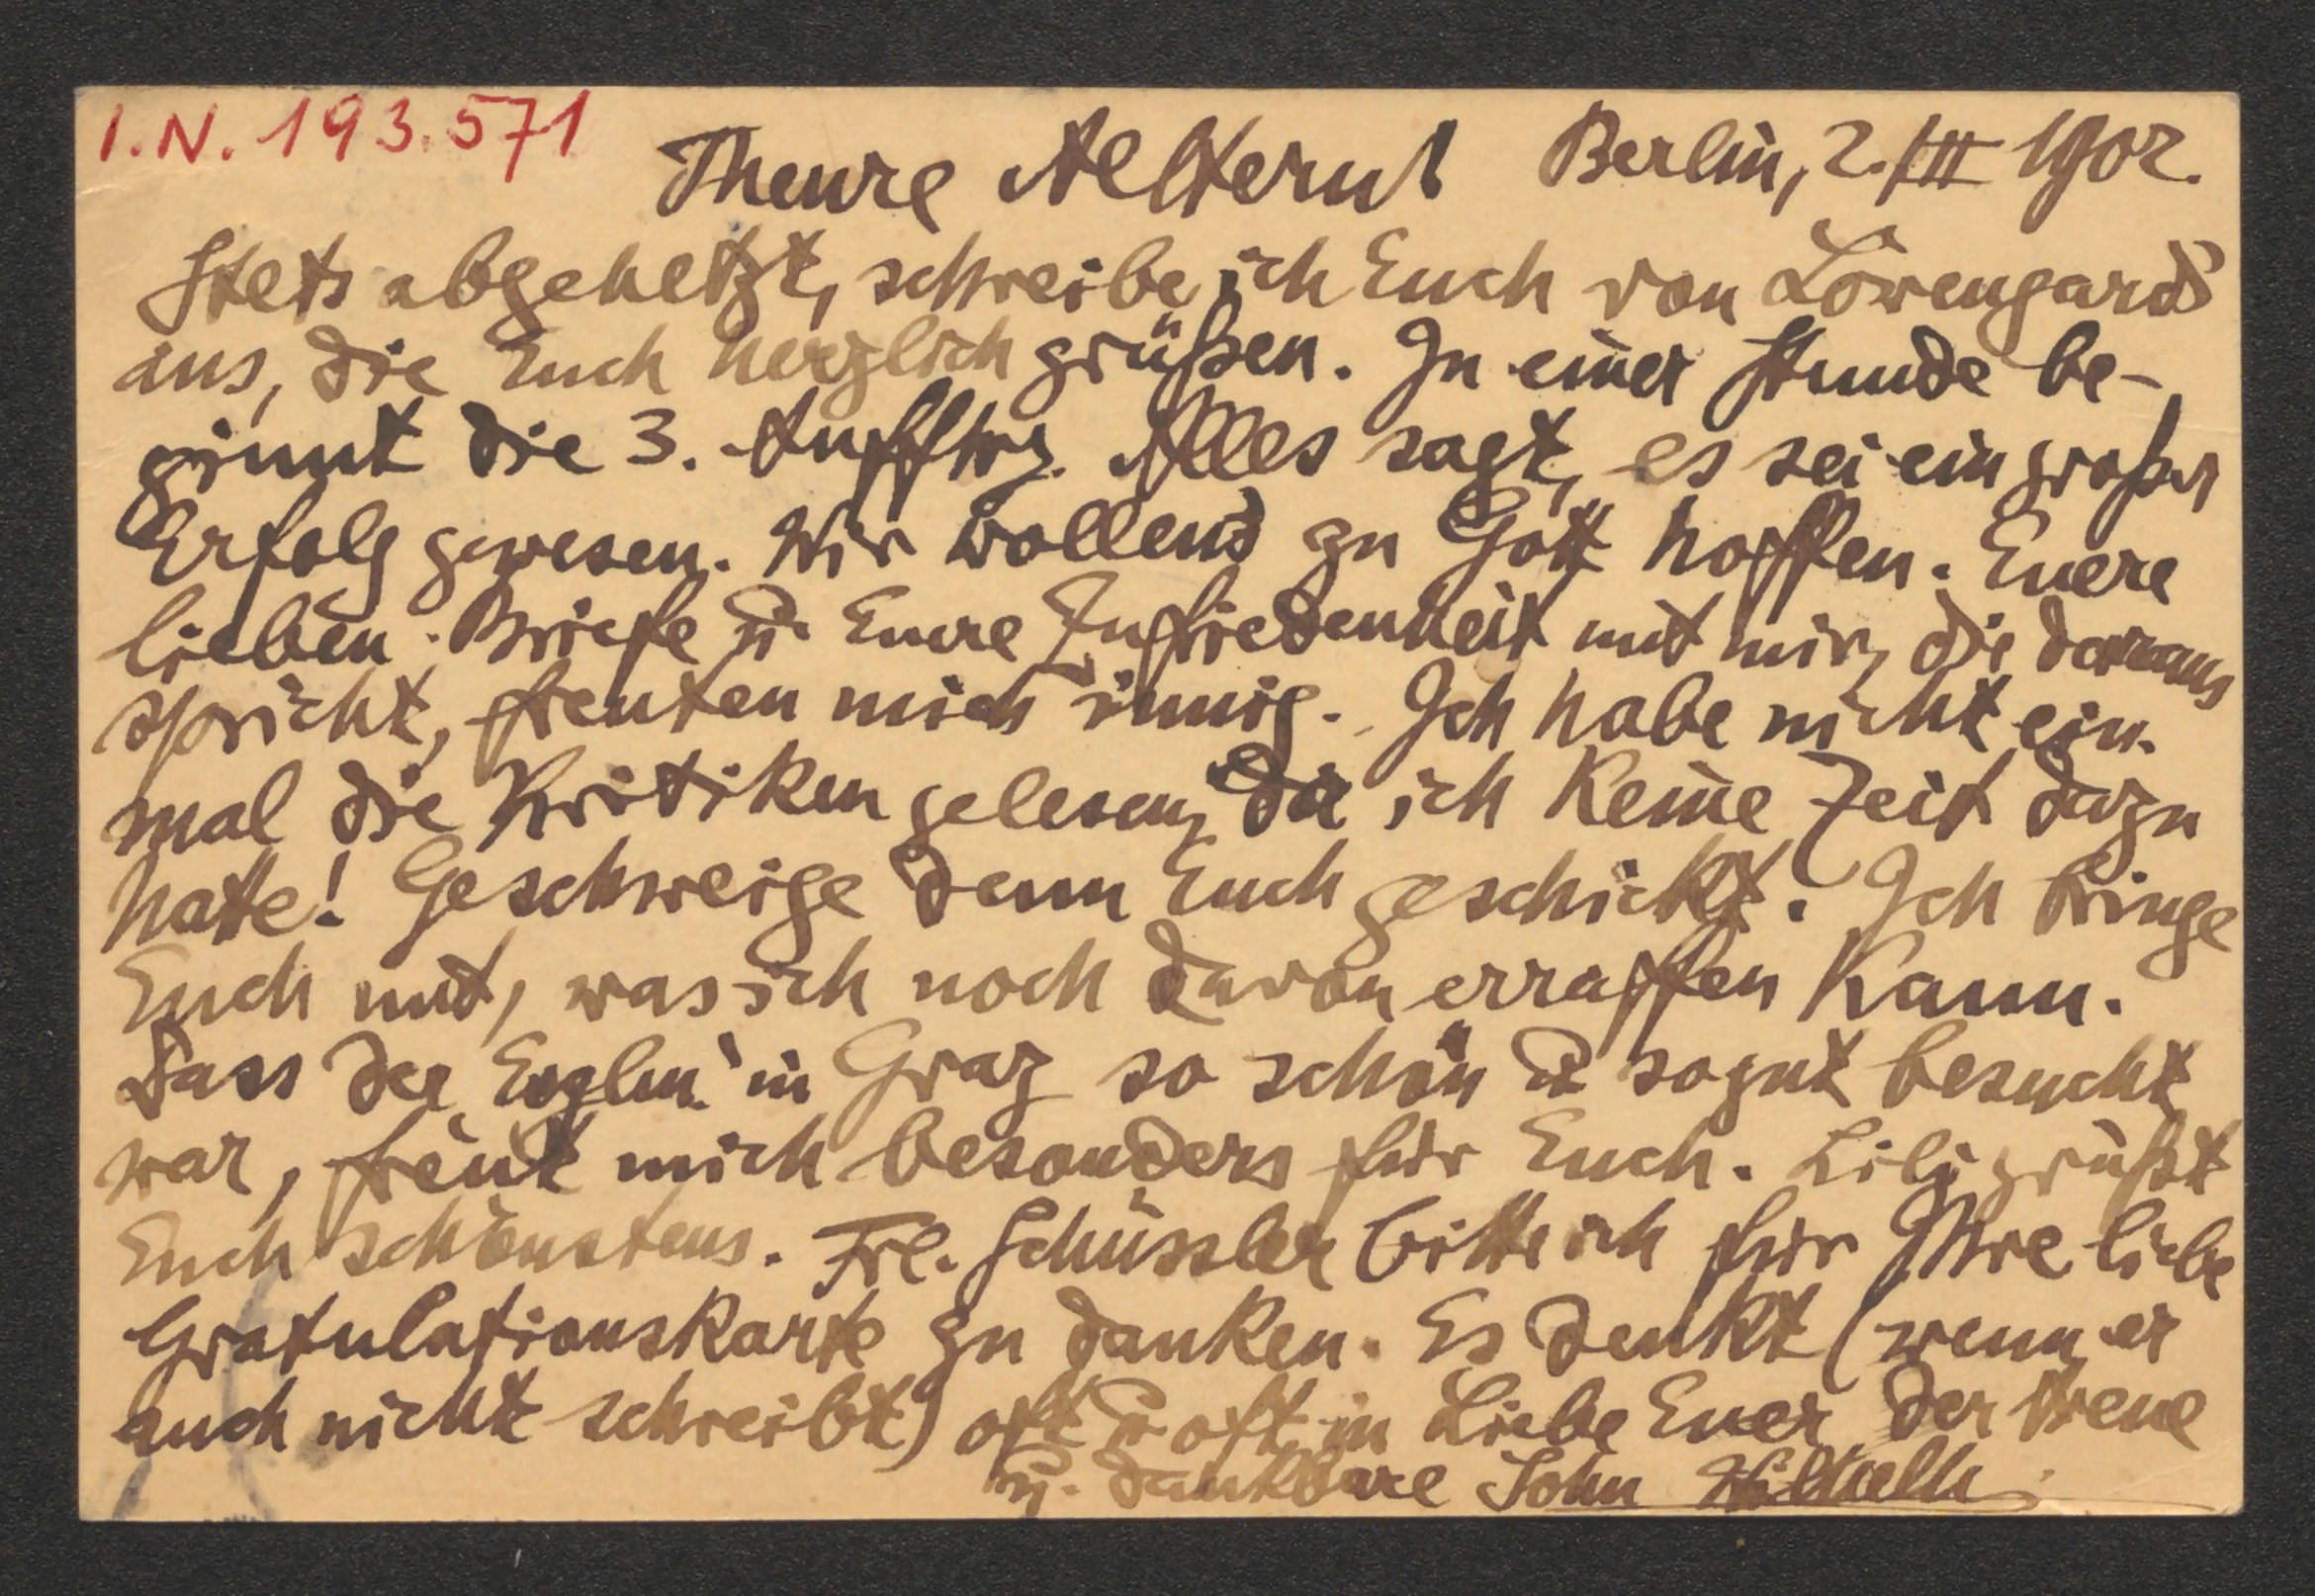 I.N. 193.571
Theure Aeltern! Berlin, 2./III 1902.
Stets abgehetzt, schreibe ich Euch von Löwengards
aus, die Euch herzlich grüßen. In einer Stunde be-
ginnt die 3. Auffhrg. Alles sagt, es sei ein großer
Erfolg gewesen. Wir wollens zu Gott hoffen. Euere
lieben Briefe u. Euere Zufriedenheit mit mir, die daraus
spricht, freuten mich innig. Ich habe nicht ein-
mal die Kritiken gelesen, da ich keine Zeit dazu
hatte! Geschweige denn Euch geschickt. Ich bringe
Euch mit, was ich noch davon erraffen kann.
Dass der in Graz so schön u so gut besucht
war, freut mich besonders für Euch. Lili grüßt
Euch schönstens. Frl. Schüssler bitte ich für Ihre liebe
Gratulationskarte zu danken. Es denkt (wenn er
auch nicht schreibt) oft u oft in Liebe Euer der treue
u. dankbare Sohn